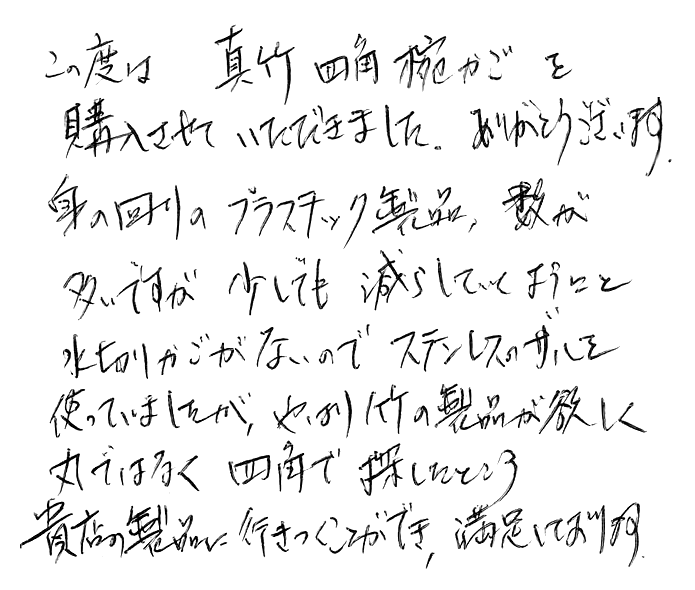 この度は 真竹四角椀かごを
購入させていただきました。ありがとうございます.
身の回りのプラスチック製品、数が
多いですが 少しでも 減らしていくようにと
水切りかごがないので ステンレスのザルを
使っていましたが、やはり竹の製品が欲しく
丸ではなく 四角で 探したところ
貴店の製品に行きつくことができ、満足しております.